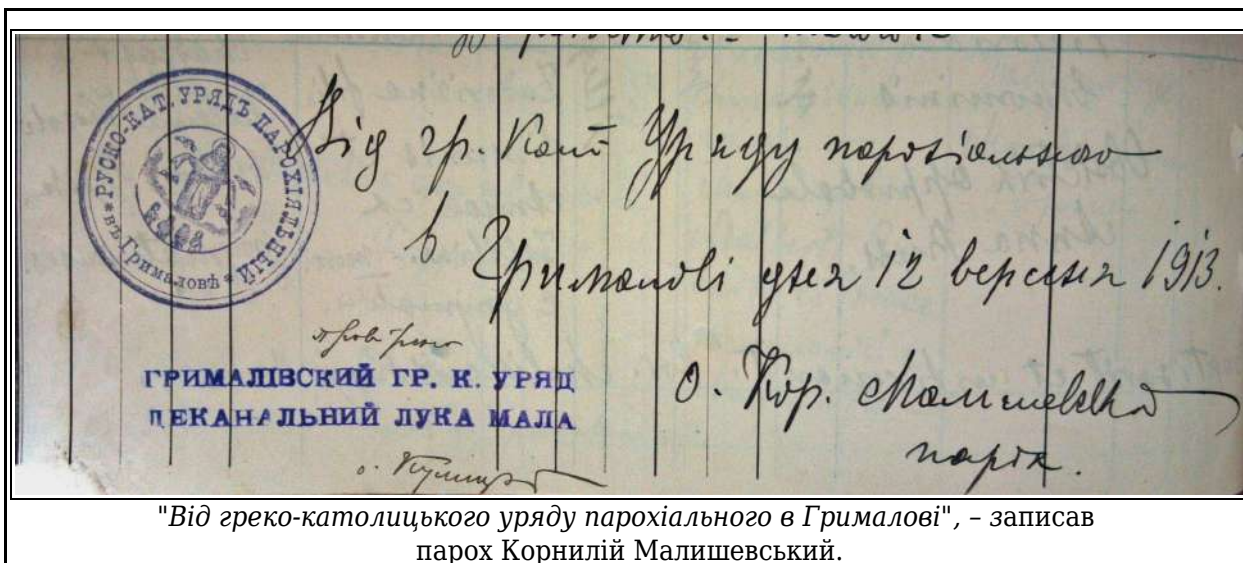 РУСКО-КАТ. УРЯДЪ ПАРОХІЯЛЬНЫЙ
въ Грималовѣ
Від гр. Кат Уряду парохіяльного
в Грималові дня 12 вересня 1913.
о. Кор. Малишевскій
парох.
ГРИМАЛІВСКИЙ ГР. К. УРЯД
ДЕКАНАЛЬНИЙ ЛУКА МАЛА
"Від греко-католицького уряду парохіального в Грималові", – записав
парох Корнилій Малишевський.